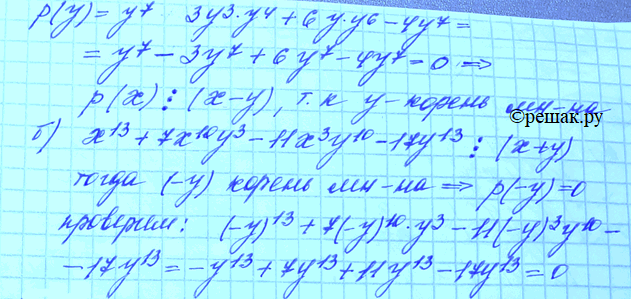 p(y) = y⁷ 3y³·y⁴ + 6y·y⁶ - 4y⁷ =
= y⁷ - 3y⁷ + 6y⁷ - 4y⁷ = 0 =>
p(x) ⋮ (x-y), т.к y - корень мн-на
©решак.ру
б) x¹³ + 7x¹⁰y³ - 11x³y¹⁰ - 17y¹³ ⋮ (x+y)
тогда (-y) корень мн-на => p(-y)=0
проверим: (-y)¹³ + 7(-y)¹⁰·y³ - 11(-y)³y¹⁰ -
- 17y¹³ = -y¹³ + 7y¹³ + 11y¹³ - 17y¹³ = 0